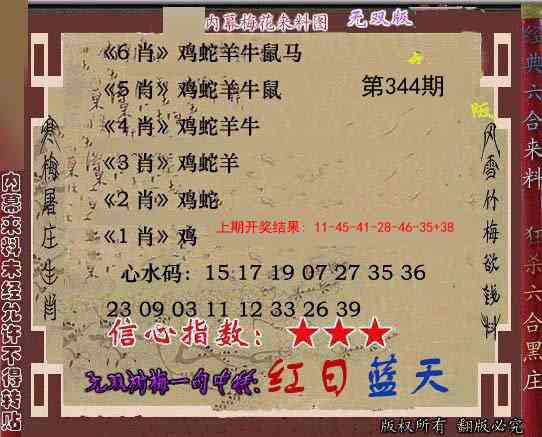 内幕梅花来料图 无双版
《6 肖》鸡蛇羊牛鼠马
《5 肖》鸡蛇羊牛鼠
第344期
《4 肖》鸡蛇羊牛
《3 肖》鸡蛇羊
《2 肖》鸡蛇
上期开奖结果：11-45-41-28-46-35+38
《1 肖》鸡
心水码：15 17 19 07 27 35 36
23 09 03 11 12 33 26 39
信心指数：★★★
无双鸿梅一句中特:红日蓝天
版权所有 翻版必究
寒梅屠庄生肖
风雪竹梅欲钱料
内幕来料未经允许不得转贴
经典六合来料
狂杀六合黑庄
版